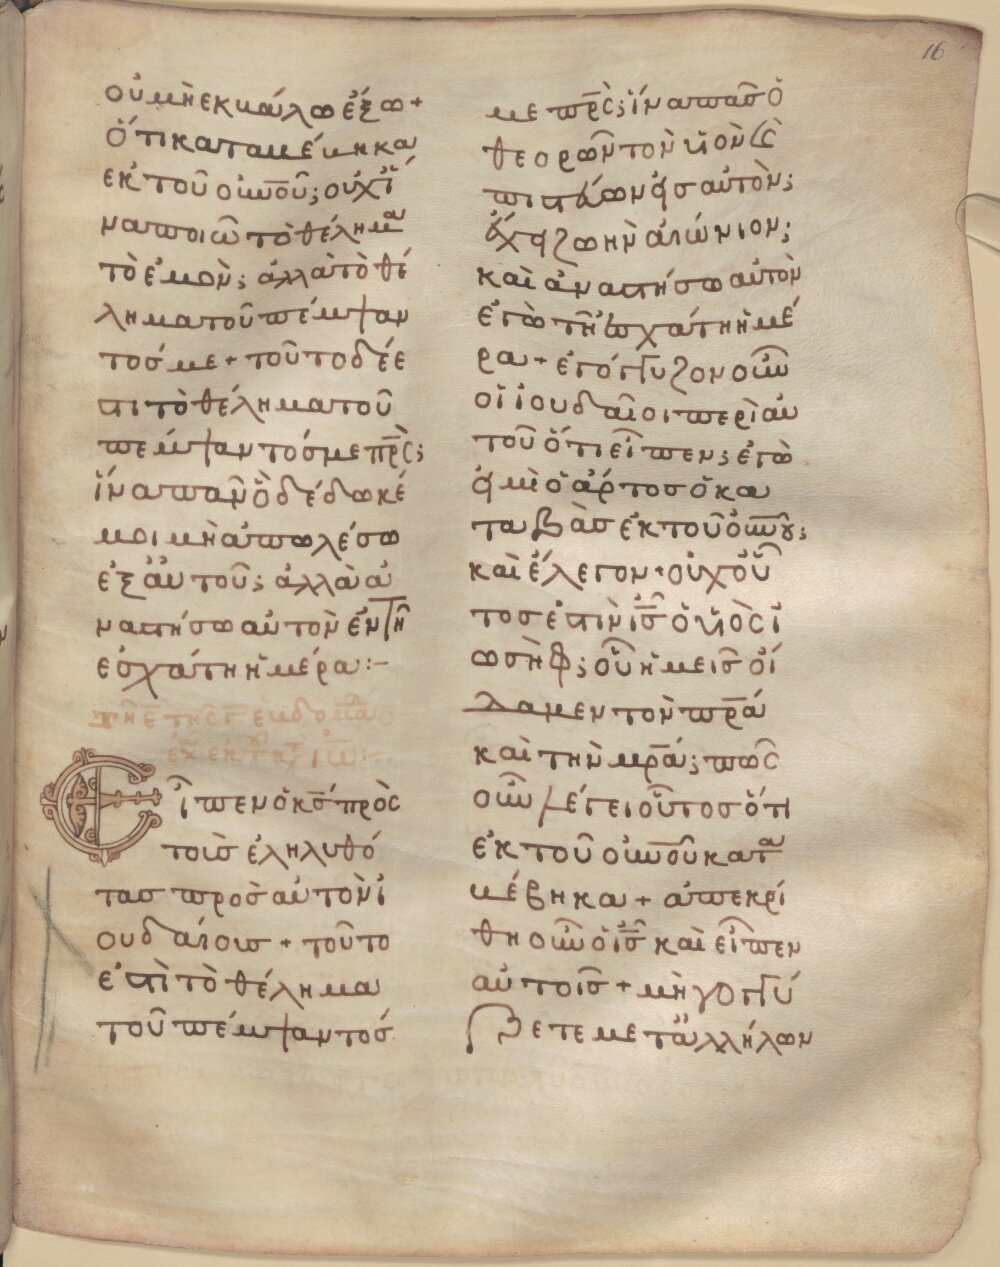 16
οὐ μὴ ἐκβάλω ἔξω +
ὅτι καταβέβηκα
ἐκ τοῦ οὐνοῦ; οὐχ ἵ
να ποιῶ τὸ θέλημα
τὸ ἐμὸν; ἀλλὰ τὸ θέ
λημα τοῦ πέμψαν
τόσ με + τοῦτο δέ ἐ
στι τὸ θέλημα τοῦ
πέμψαντόσ με πρς;
ἵνα πᾶν ὃ δέδωκέ
μοι μὴ ἀπολέσω
ἐξ αὐτοῦ; ἀλλὰ ἀ
ναστήσω αὐτὸν ἐν τῆ
ἐσχάτη ἡμέρα :–
Εἶπεν ὁ κς πρὸς
τοὺσ ἐληλυθό
τασ προσ αὐτὸν ἰ
ουδαίουσ + τοῦτο
ἐστὶ τὸ θέλημα
τοῦ πέμψαντόσ
με πρς; ἵνα πασ ὁ
θεορῶν τὸν υἱὸν κὲ
πιστεύων εἰσ αὐτὸν;
ἔχει ζωὴν αἰώνιον;
καὶ ἀναστήσω αὐτὸν
ἐγὼ τῆ ἐσχάτη ἡμέ
ρα + ἐγόγγυζον οὖν
οἱ ἰουδαῖοι περὶ αὐ
τοῦ ὅτι εἶπεν; ἐγὼ
εἰμὶ ὁ ἄρτοσ ὁ κα
ταβὰσ ἐκ τοῦ οὐνου;
καὶ ἔλεγον + οὐχ οὗ
τοσ ἐστὶν ισ ὁ υἱὸς ἰ
ωσὴφ; οὗ ἡμεισ οἴ
δαμεν τὸν πρα
καὶ τὴν μρα; πῶς
οὖν λέγει οὗτοσ ὅτι
ἐκ τοῦ οὐνοῦ κατα
βέβηκα + ἀπεκρί
θη οὖν ὁ ισ καὶ εἶπεν
αὐτοῖσ + μὴ γογγύ
ζετε μετ ἀλλήλων